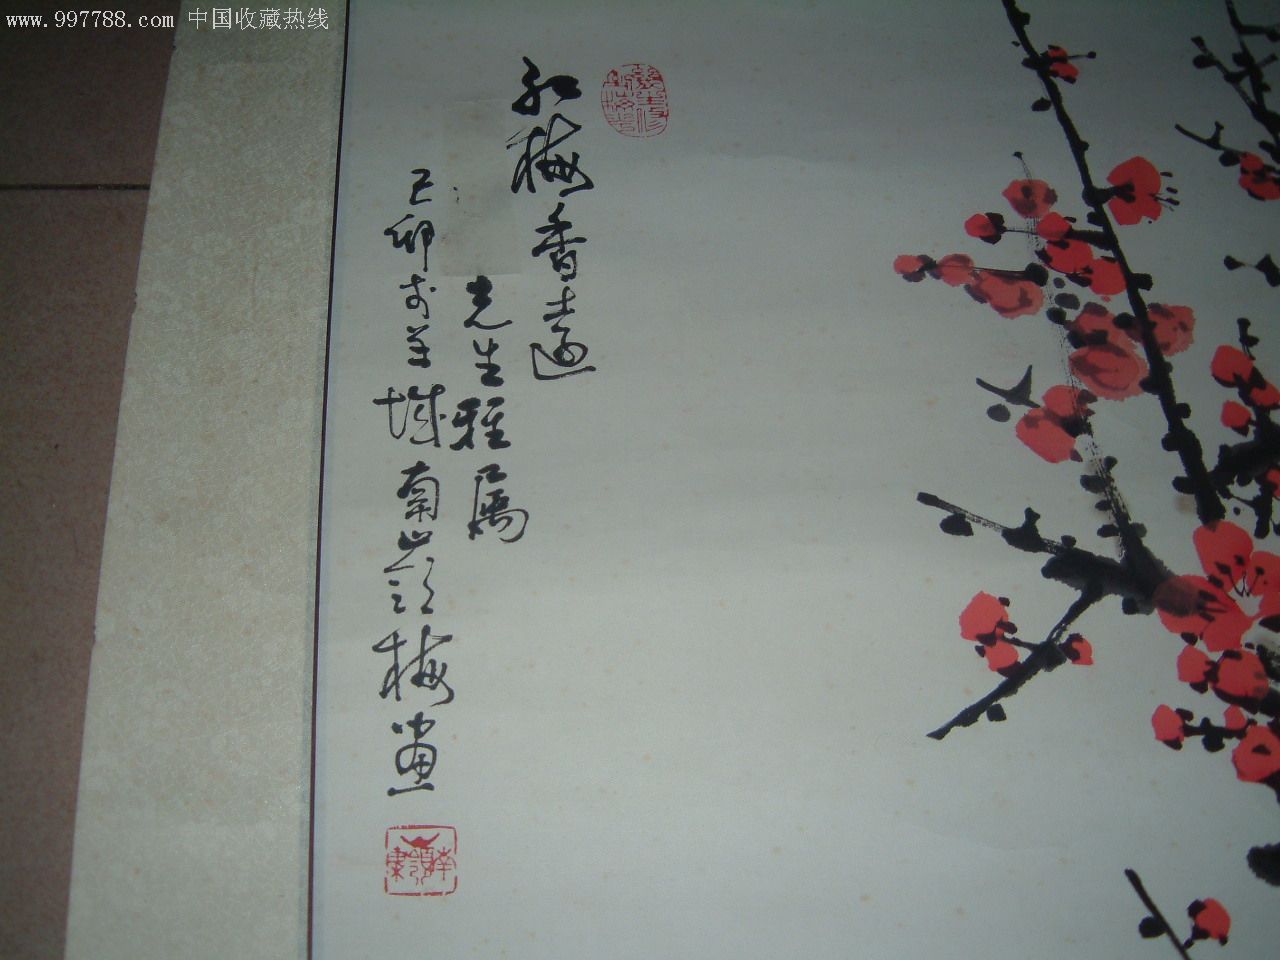 www.997788.com 中国收藏热线
红梅香远
先生雅属
己卯于羊城南岭梅画